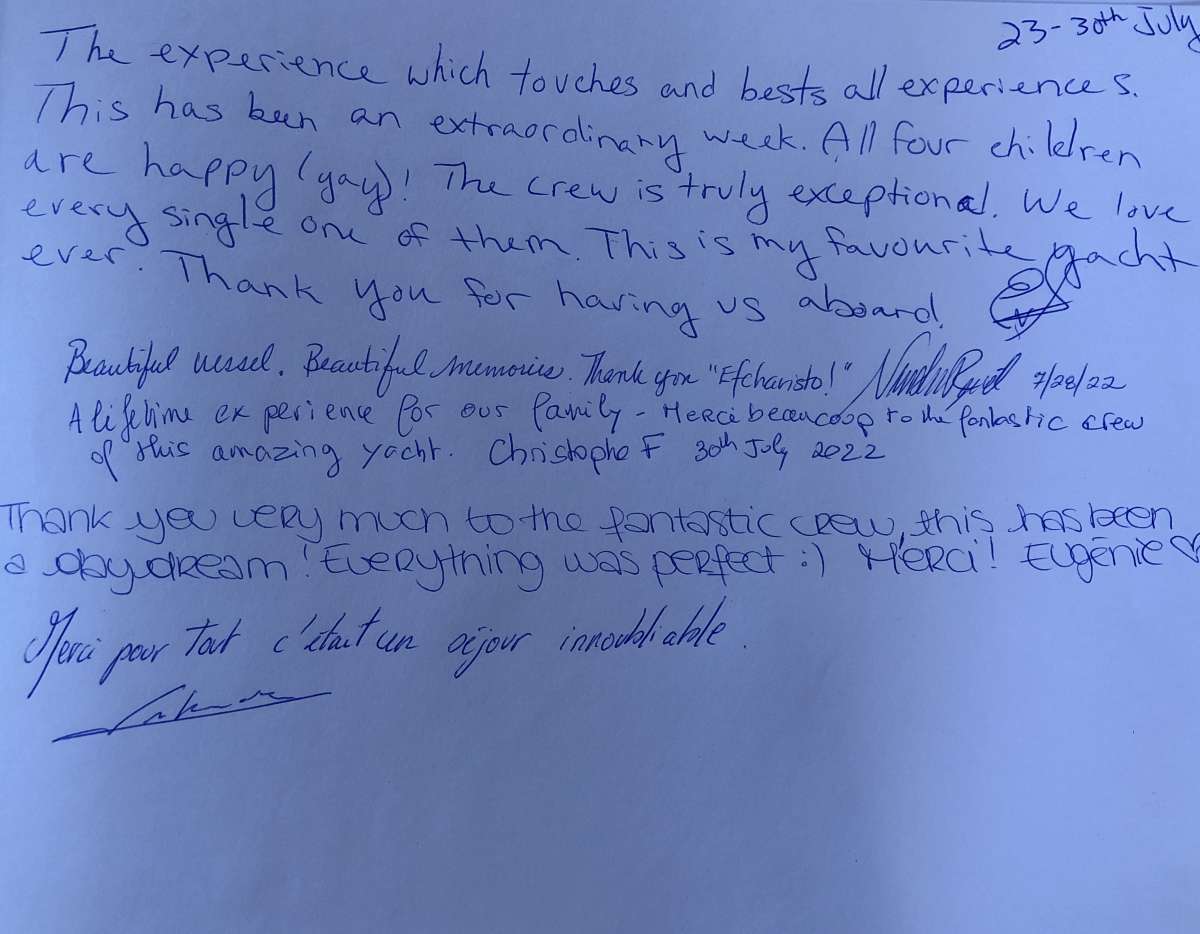 23-30th July
The experience which touches and bests all experiences.
This has been an extraordinary week. All four children
are happy (yay)! The crew is truly exceptional. We love
every single one of them. This is my favourite yacht
ever. Thank you for having us aboard.
Beautiful vessel. Beautiful memories. Thank you "Efcharisto!" 7/28/22
A lifetime experience for our family - Merci beaucoup to the fantastic crew
of this amazing yacht. Christophe F 30th July 2022
Thank you very much to the fantastic crew, this has been
a daydream! Everything was perfect :) Merci! Eugénie ♡
Merci pour Tout c'était un séjour innoubliable.